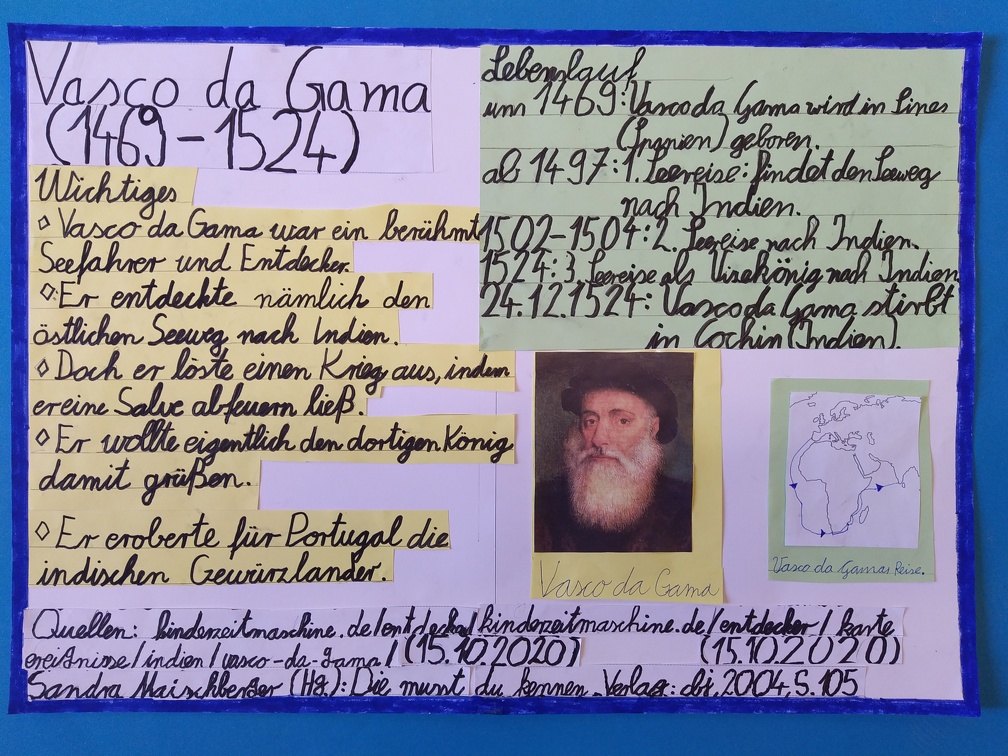 Vasco da Gama
(1469-1524)
Wichtiges
◊ Vasco da Gama war ein berühmt
Seefahrer und Entdecker.
◊ Er entdeckte nämlich den
östlichen Seeweg nach Indien.
◊ Doch er löste einen Krieg aus, indem
er eine Salve abfeuern ließ.
◊ Er wollte eigentlich den dortigen König
damit grüßen.
◊ Er eroberte für Portugal die
indischen Gewürzländer.
Lebenslauf
um 1469: Vasco da Gama wird in Sines
(Spanien) geboren.
ab 1497: 1. Seereise: findet den Seeweg
nach Indien.
1502-1504: 2. Seereise nach Indien.
1524: 3. Seereise als Vizekönig nach Indien
24.12.1524: Vasco da Gama stirbt
in Cochin (Indien).
Vasco da Gama
Vasco da Gamas Reise.
Quellen: kinderzeitmaschine.de/entdecker/kinderzeitmaschine.de/entdecker/karte
ereignisse/indien/vasco-da-gama/ (15.10.2020) (15.10.2020)
Sandra Maischberger (Hg.): Die musst du kennen. Verlag: cbj, 2004, S. 105